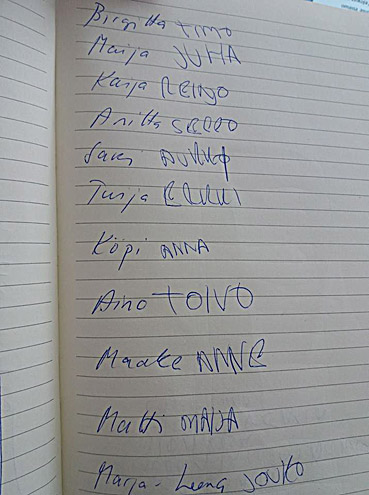 Birgitta TIMO
Marja JUHA
Karja REINO
Anitta SEPPO
Sari AURRO
Turja ERKKI
Köpi ANNA
Aino TOIVO
Maake ANNE
Matti MAIJA
Marja-Leena JOUKO